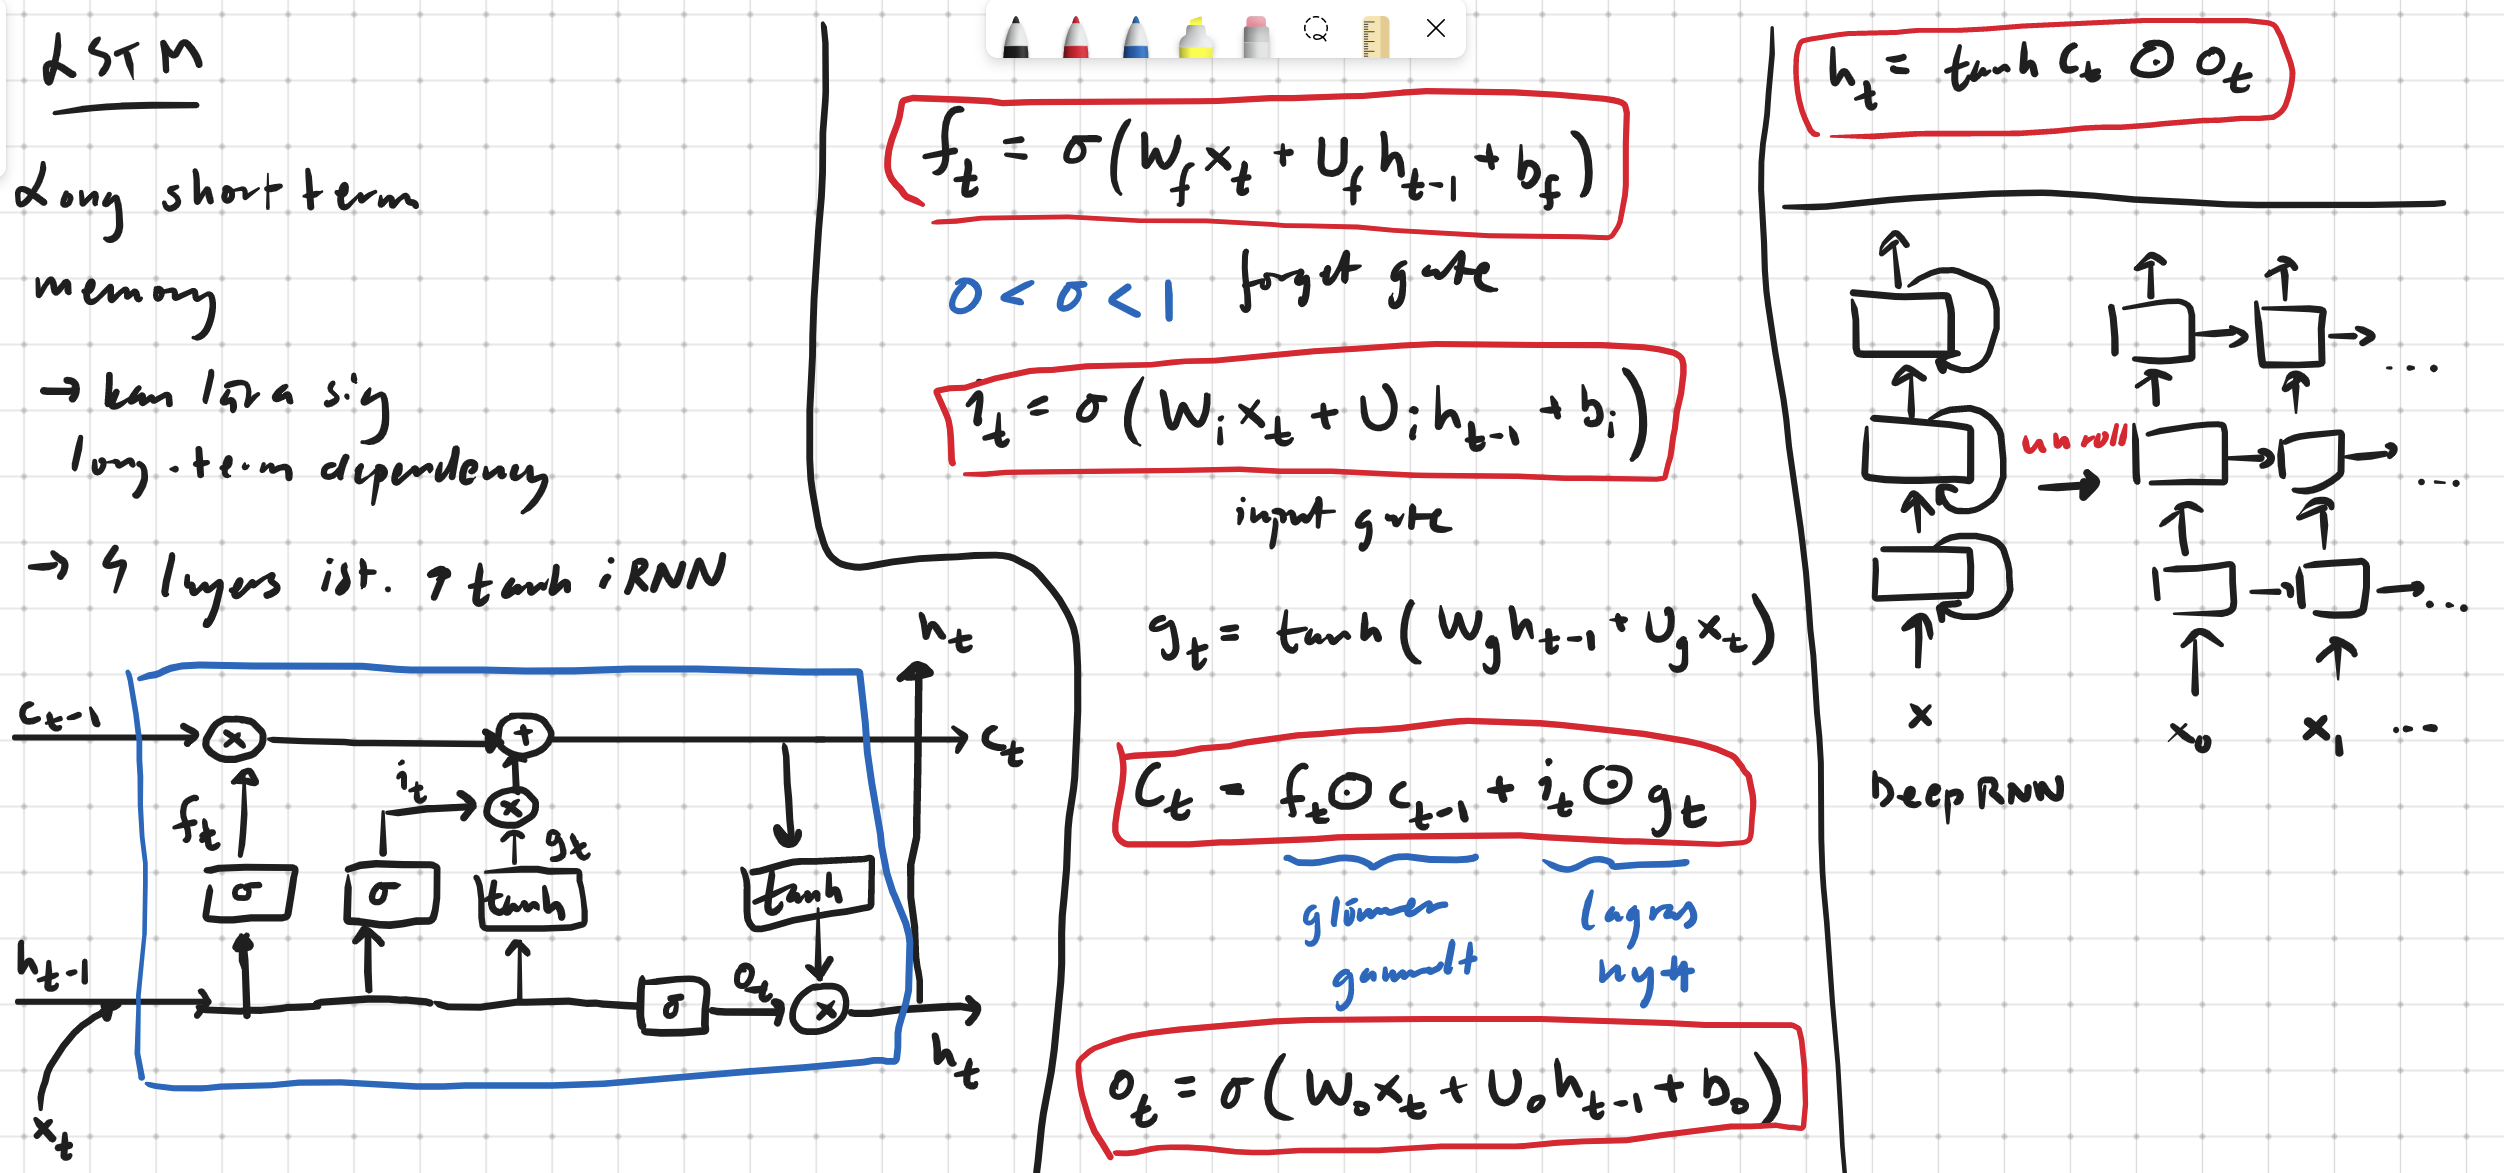 LSTM
Long short term
memory
→ kan lära sig
long-term dependency
→ 4 layers ist. ↑ tanh i RNN
h_t
c_{t-1}
c_t
i_t
f_t
g_t
σ
σ
tanh
tanh
h_{t-1}
σ
o_t
h_t
x_t
f_t = σ(W_f x_t + U_f h_{t-1} + b_f)
0 < σ < 1
forgot gate
i_t = σ(W_i x_t + U_i h_{t-1} + b_i)
input gate
g_t = tanh(W_g h_{t-1} + U_g x_t)
C_t = f_t ⊙ c_{t-1} + i_t ⊙ g_t
glömmer
gammalt
lagras
nytt
o_t = σ(W_o x_t + U_o h_{t-1} + b_o)
h_t = tanh C_t ⊙ o_t
unroll
...
...
...
x
x_0
x_1
...
Deep RNN